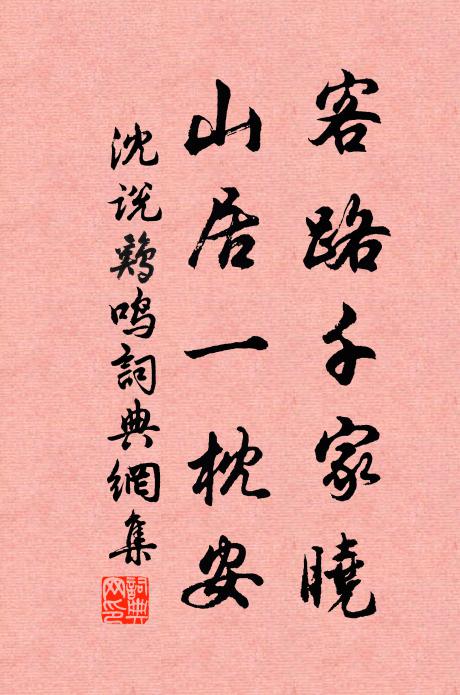 客路千家曉
山居一枕安
沈说鷄鳴詞典網集
詞典網印